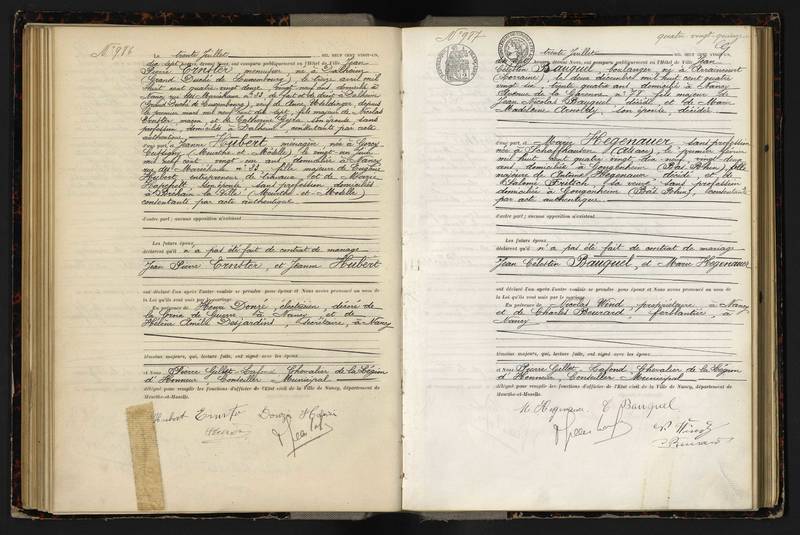 N° 986
Le trente Juillet MIL NEUF CENT VINGT-UN,
dix sept heures, devant Nous, ont comparu publiquement en l'Hôtel de Ville Jean
Pierre Ernster, menuisier, né à Dalheim
(Grand Duché de Luxembourg), le treize avril mil
huit cent quatre vingt douze, vingt neuf ans, domicilié à
Nancy, rue des Maréchaux n° 33, de fait et de droit à Dalheim
(Grand Duché de Luxembourg), veuf de Anne Heldinger, depuis
le premier mars mil neuf cent dix sept, fils majeur de Nicolas
Ernster, maçon, et de Catherine, son épouse, sans
profession, domiciliés à Dalheim, consentants par acte
authentique
d'une part; Jeanne Hubert, ménagère, née à
(Meurthe et Moselle), le vingt un Juin
mil neuf cent, vingt un ans, domiciliée à Nancy,
rue des Maréchaux n° 33, fille majeure de Eugène
Hubert, entrepreneur de travaux, et de Marie
son épouse, sans profession, domiciliés
à (Meurthe et Moselle)
consentants par acte authentique.
d'autre part; aucune opposition n'existant
Les futurs époux
déclarent qu'il n'a pas été fait de contrat de mariage
Jean Pierre Ernster, et Jeanne Hubert
ont déclaré l'un après l'autre vouloir se prendre pour époux et Nous avons prononcé au nom de
la Loi qu'ils sont unis par le mariage.
En présence de Henri Donzé, électricien, décoré de
la Croix de Guerre, à Nancy, et de
Hélène Emilie Desjardins, secrétaire, à Nancy
témoins majeurs, qui, lecture faite, ont signé avec les époux
et Nous Pierre Gillet-Lafond, Chevalier de la Légion
d'Honneur, Conseiller Municipal
délégué pour remplir les fonctions d'officier de l'État civil de la Ville de Nancy, département de
Meurthe-et-Moselle.
Hubert Ernster Donzé Henri
N° 987
quatre vingt quinze
Le trente Juillet MIL NEUF CENT VINGT-UN,
dix sept heures, devant Nous, ont comparu publiquement en l'Hôtel de Ville Jean
Célestin Bauquel, boulanger, né à Arraincourt
(Lorraine), le deux décembre mil huit cent quatre
vingt six, trente quatre ans, domicilié à Nancy
Avenue de la Garenne n° 78, fils majeur de
Jean Nicolas Bauquel, décédé, et de Marie
Madeleine, son épouse, décédée.
d'une part; et Marie Hegenauer, sans profession
née à Schaffhausen (Alsace), le premier
mil huit cent quatre vingt dix neuf, vingt deux
ans, domiciliée à Gougenheim (Bas Rhin), fille
majeure de Antoine Hegenauer, décédé, et de
Salomé Fritsch, sa veuve, sans profession,
domiciliée à Gougenheim (Bas Rhin), consentante
par acte authentique.
d'autre part; aucune opposition n'existant
Les futurs époux
déclarent qu'il n'a pas été fait de contrat de mariage
Jean Célestin Bauquel, et Marie Hegenauer
ont déclaré l'un après l'autre vouloir se prendre pour époux et Nous avons prononcé au nom de
la Loi qu'ils sont unis par le mariage.
En présence de Nicolas Wind, propriétaire, à Nancy
et de Charles Beurard, ferblantier, à
Nancy
témoins majeurs, qui, lecture faite, ont signé avec les époux
et Nous Pierre Gillet-Lafond, Chevalier de la Légion
d'Honneur, Conseiller Municipal
délégué pour remplir les fonctions d'officier de l'État civil de la Ville de Nancy, département de
Meurthe-et-Moselle.
M. Hegenauer C. Bauquel
N. Wind